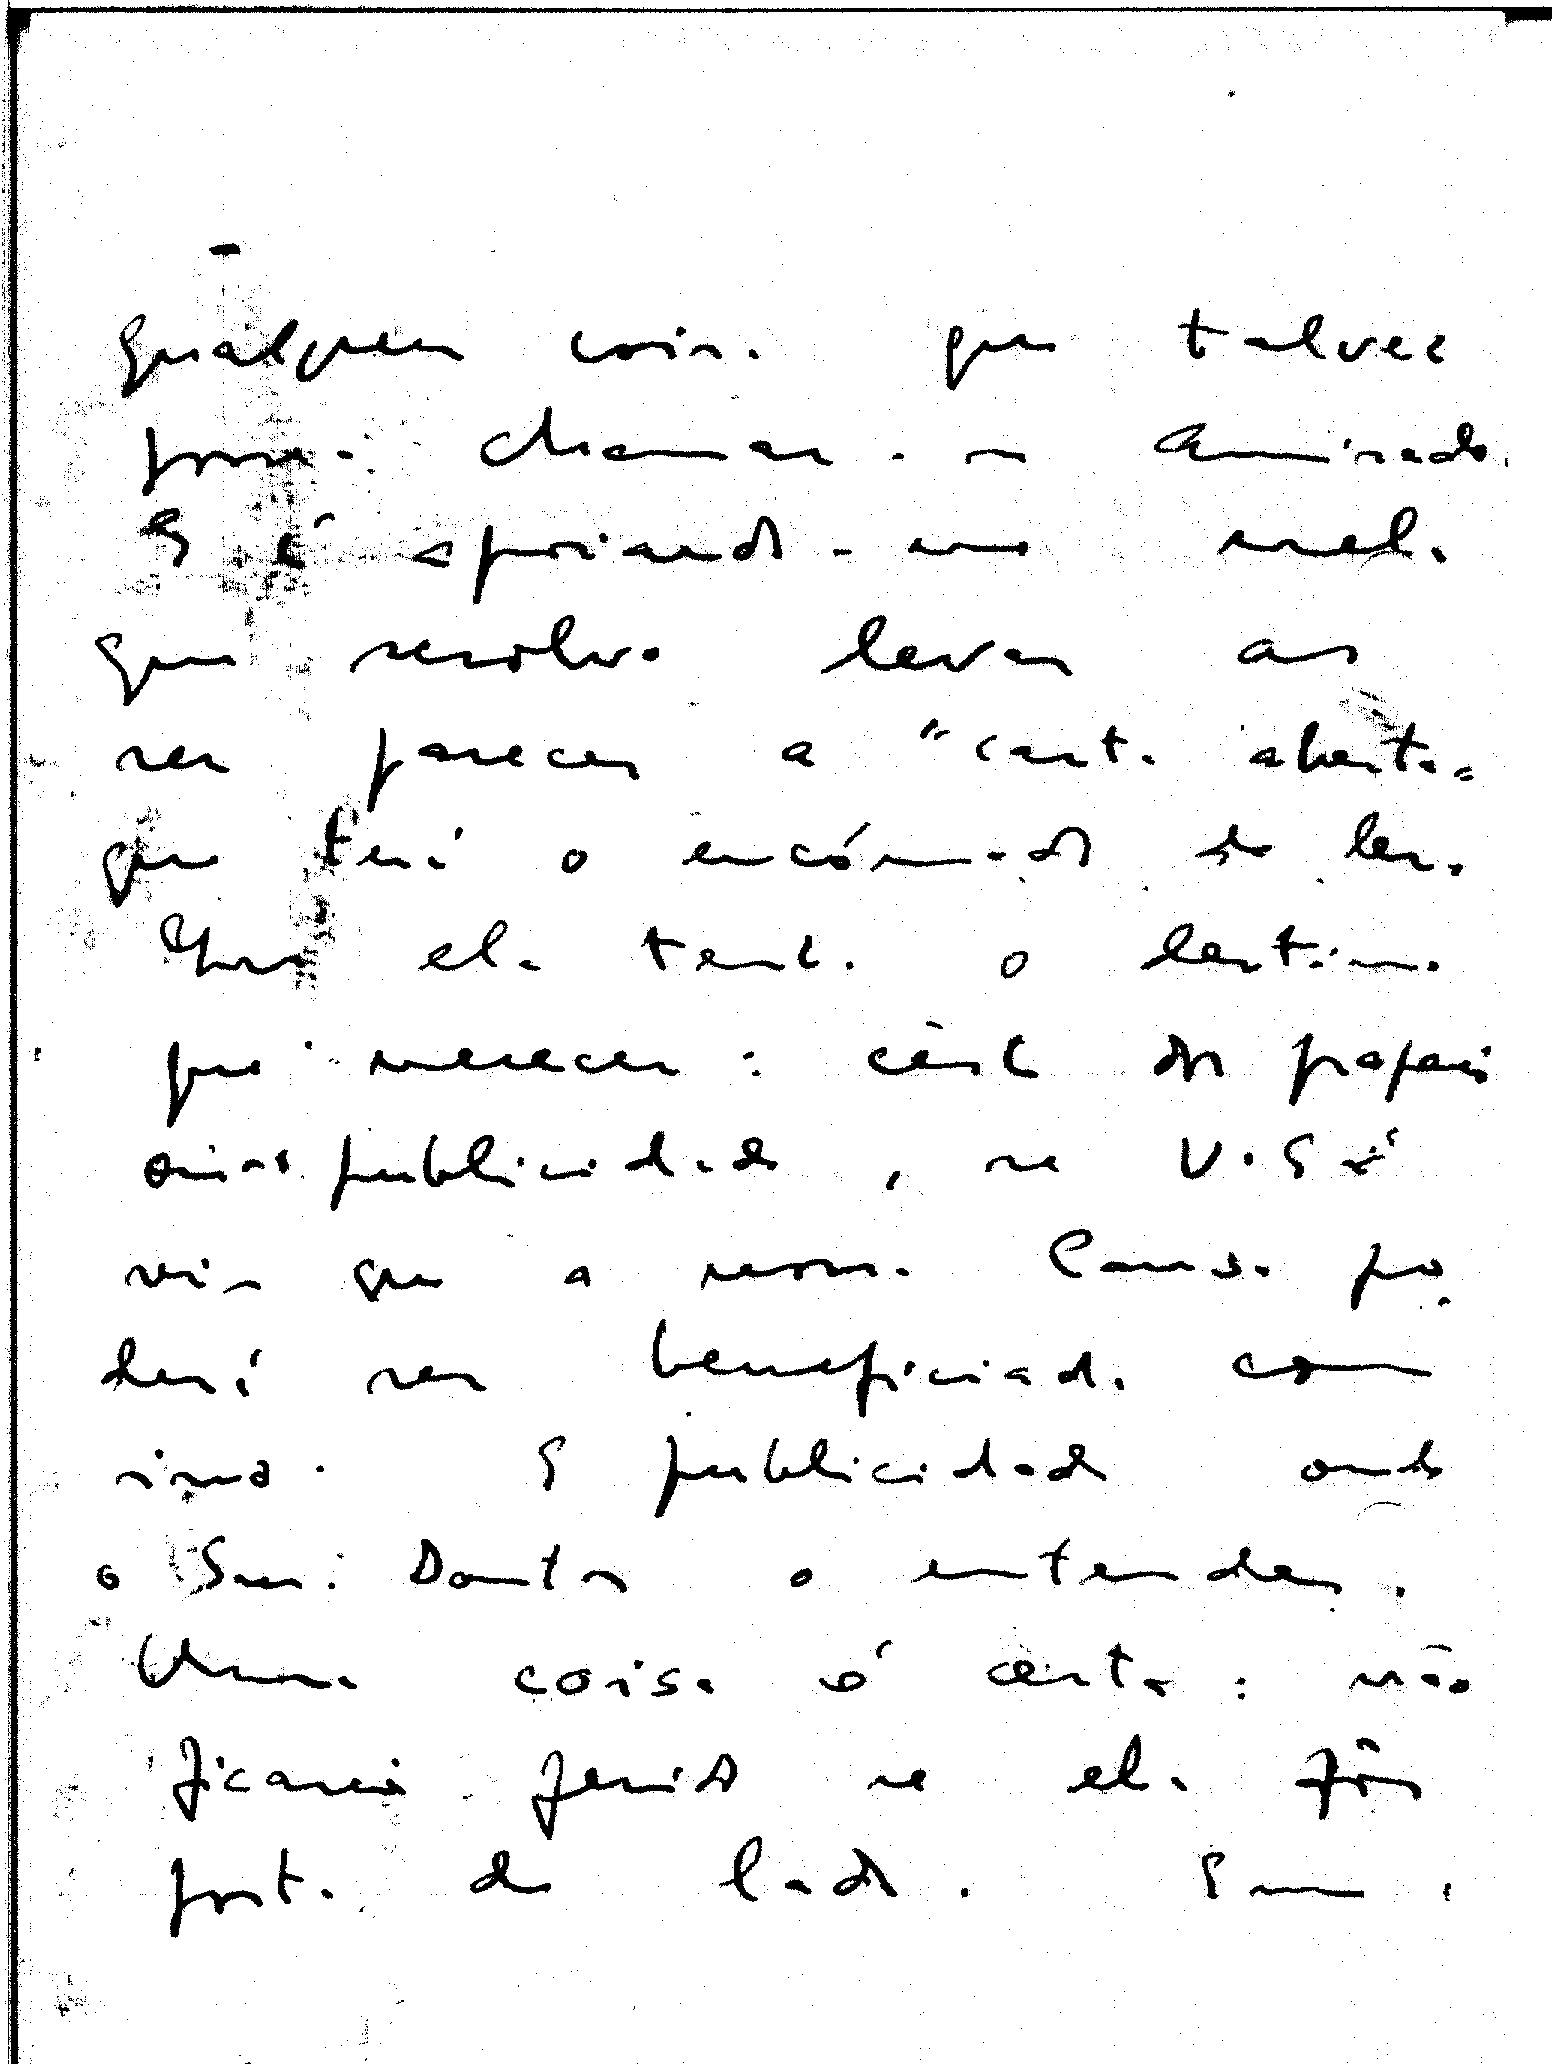 qualquer coisa que talvez
possa chamar-se amizade.
E é apoiando-me nela
que resolvo levar ao
seu parecer a "carta aberta"
que terá o encómodo de ler.
Que ela tenha o destino
que merecer: cêsto dos papeis
ou publicidade, se V. Sª
vir que a nossa Causa po
derá ser beneficiada com
isso. E publicidade onde
o Snr. Doutor o entender.
Uma coisa é certa: não
ficarei ferido se ela fôr
posta de lado. Sou,